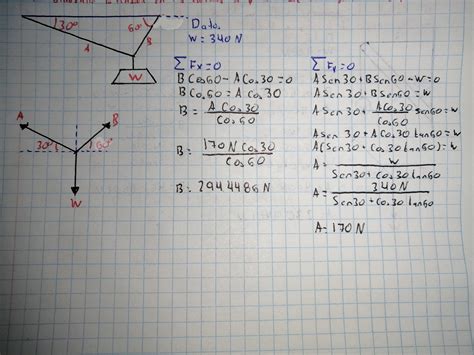 30°
60°
A
B
W
Dato.
W = 340N
A
B
30°
60°
W
ΣFx=0
B Cos60 - A Cos30 = 0
B Cos60 = A Cos30
B = A Cos30
Cos60
B = 170N Cos30
Cos60
B = 294.4486 N
ΣFy=0
A Sen30 + B Sen60 - W = 0
A Sen30 + B Sen60 = W
A Sen30 + A Cos30 Sen60 = W
Cos60
A Sen30 + A Cos30 tan60 = W
A (Sen30 + Cos30 tan60) = W
A = W
Sen30 + Cos30 tan60
A = 340N
Sen30 + Cos30 tan60
A = 170N